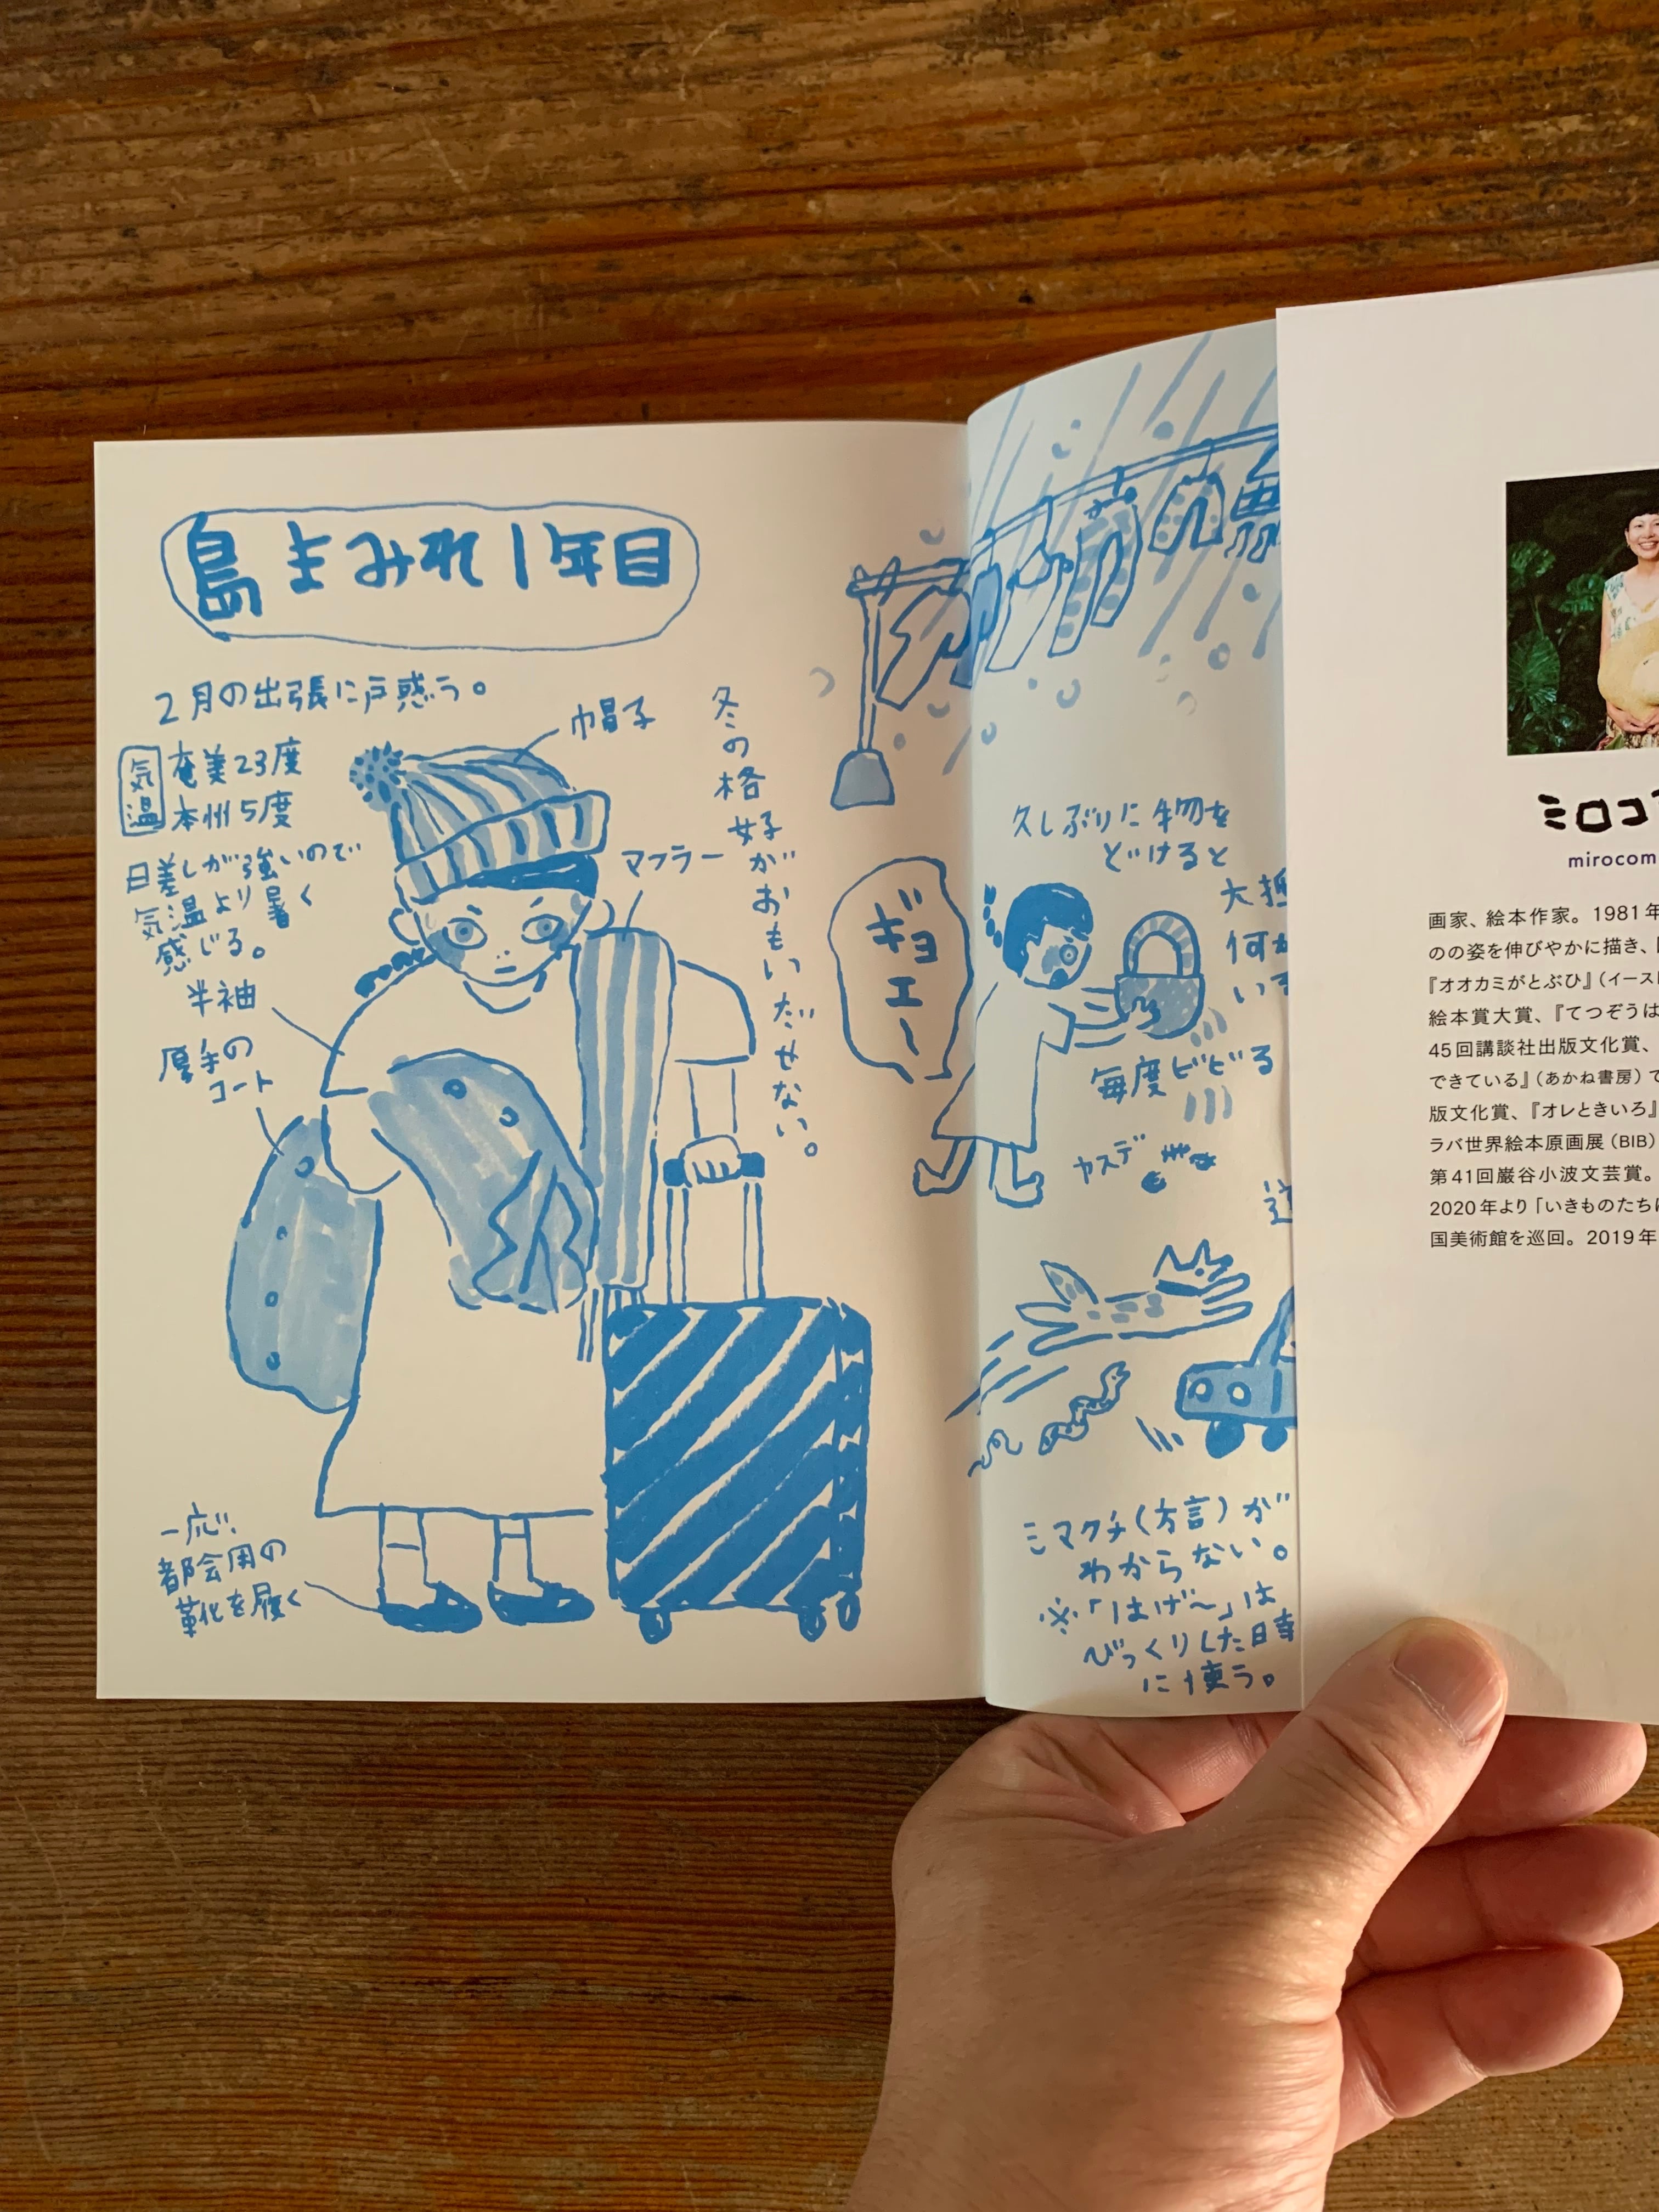 島まみれ1年目
2月の出張に戸惑う。
気温
奄美23度
本州5度
日差しが強いので
気温より暑く
感じる。
半袖
厚手の
コート
帽子
マフラー
冬の格好がおもいだせない。
一応、
都会用の
靴を履く
ギョエー
久しぶりに物を
どけると
大抵
何か
いる
毎度ビビる
ヤスデ
シマクチ(方言)が
わからない。
※「はげ〜」は
びっくりした時
に使う。
ミロコ
mirocom
画家、絵本作家。1981年
のの姿を伸びやかに描き、
『オオカミがとぶひ』(イースト
絵本賞大賞、『てつぞうは
45回講談社出版文化賞、
できている』(あかね書房)で
版文化賞、『オレときいろ』
ラバ世界絵本原画展(BIB)
第41回巌谷小波文芸賞。
2020年より「いきものたちは
国美術館を巡回。2019年